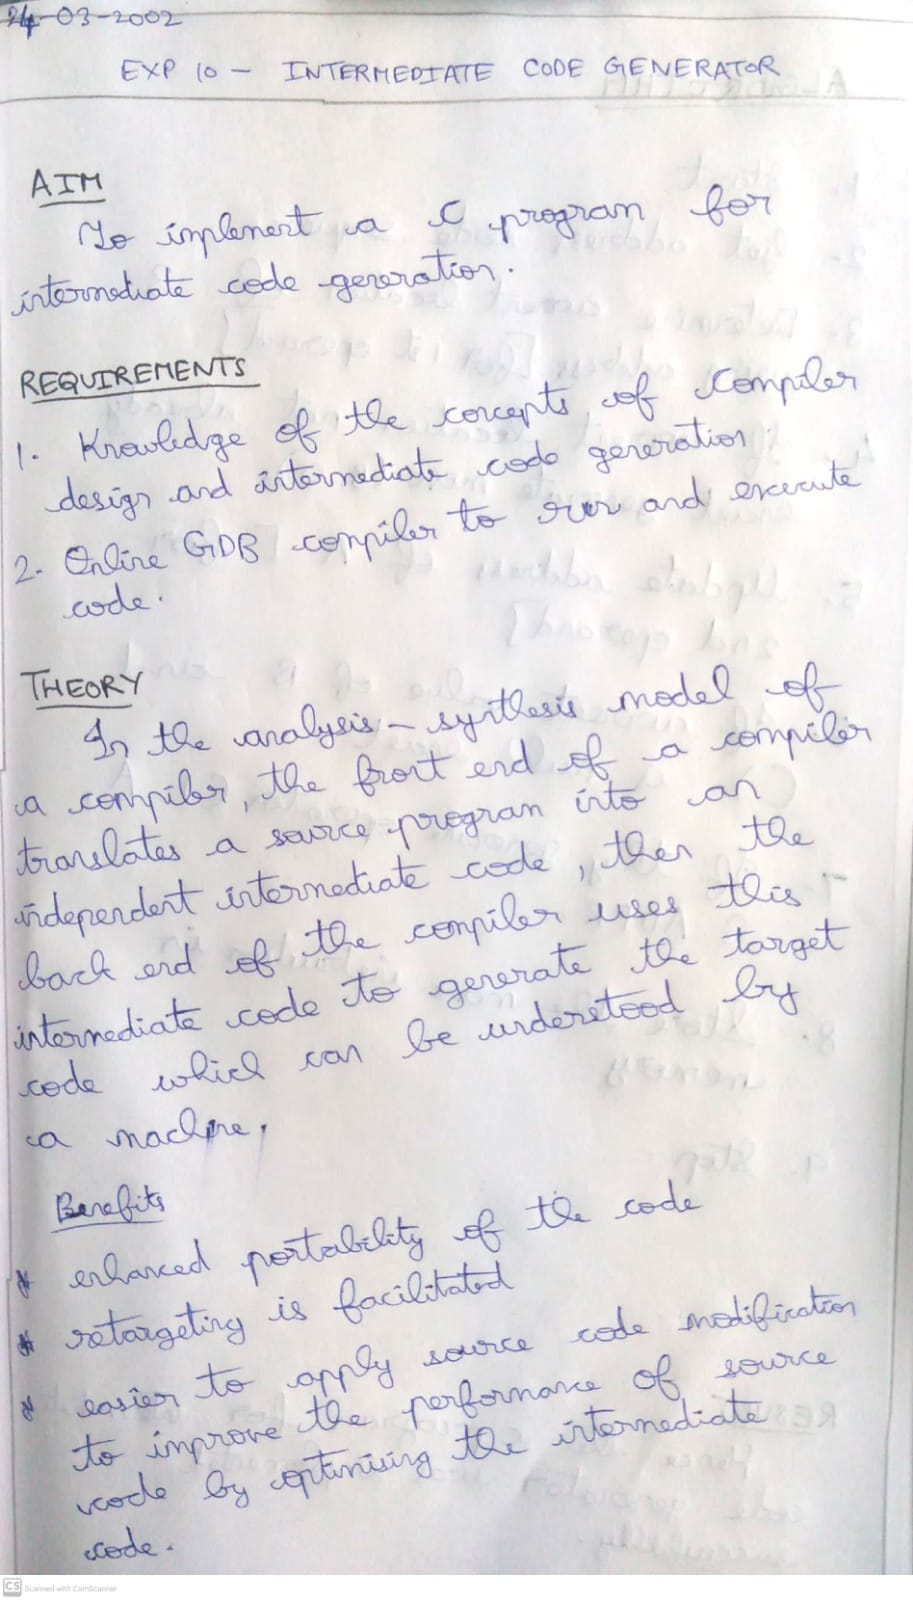 24-03-2002
EXP 10 - INTERMEDIATE CODE GENERATOR
AIM
To implement a C program for
intermediate code generation.
REQUIREMENTS
1. Knowledge of the concepts of compiler
design and intermediate code generation
2. Online GDB compiler to run and execute
code.
THEORY
In the analysis - synthesis model of
a compiler, the front end of a compiler
translates a source program into an
independent intermediate code, then the
back end of the compiler uses this
intermediate code to generate the target
code which can be understood by
a machine.
Benefits
* enhanced portability of the code
* retargeting is facilitated
* easier to apply source code modification
to improve the performance of source
code by optimising the intermediate
code.
CS Scanned with CamScanner